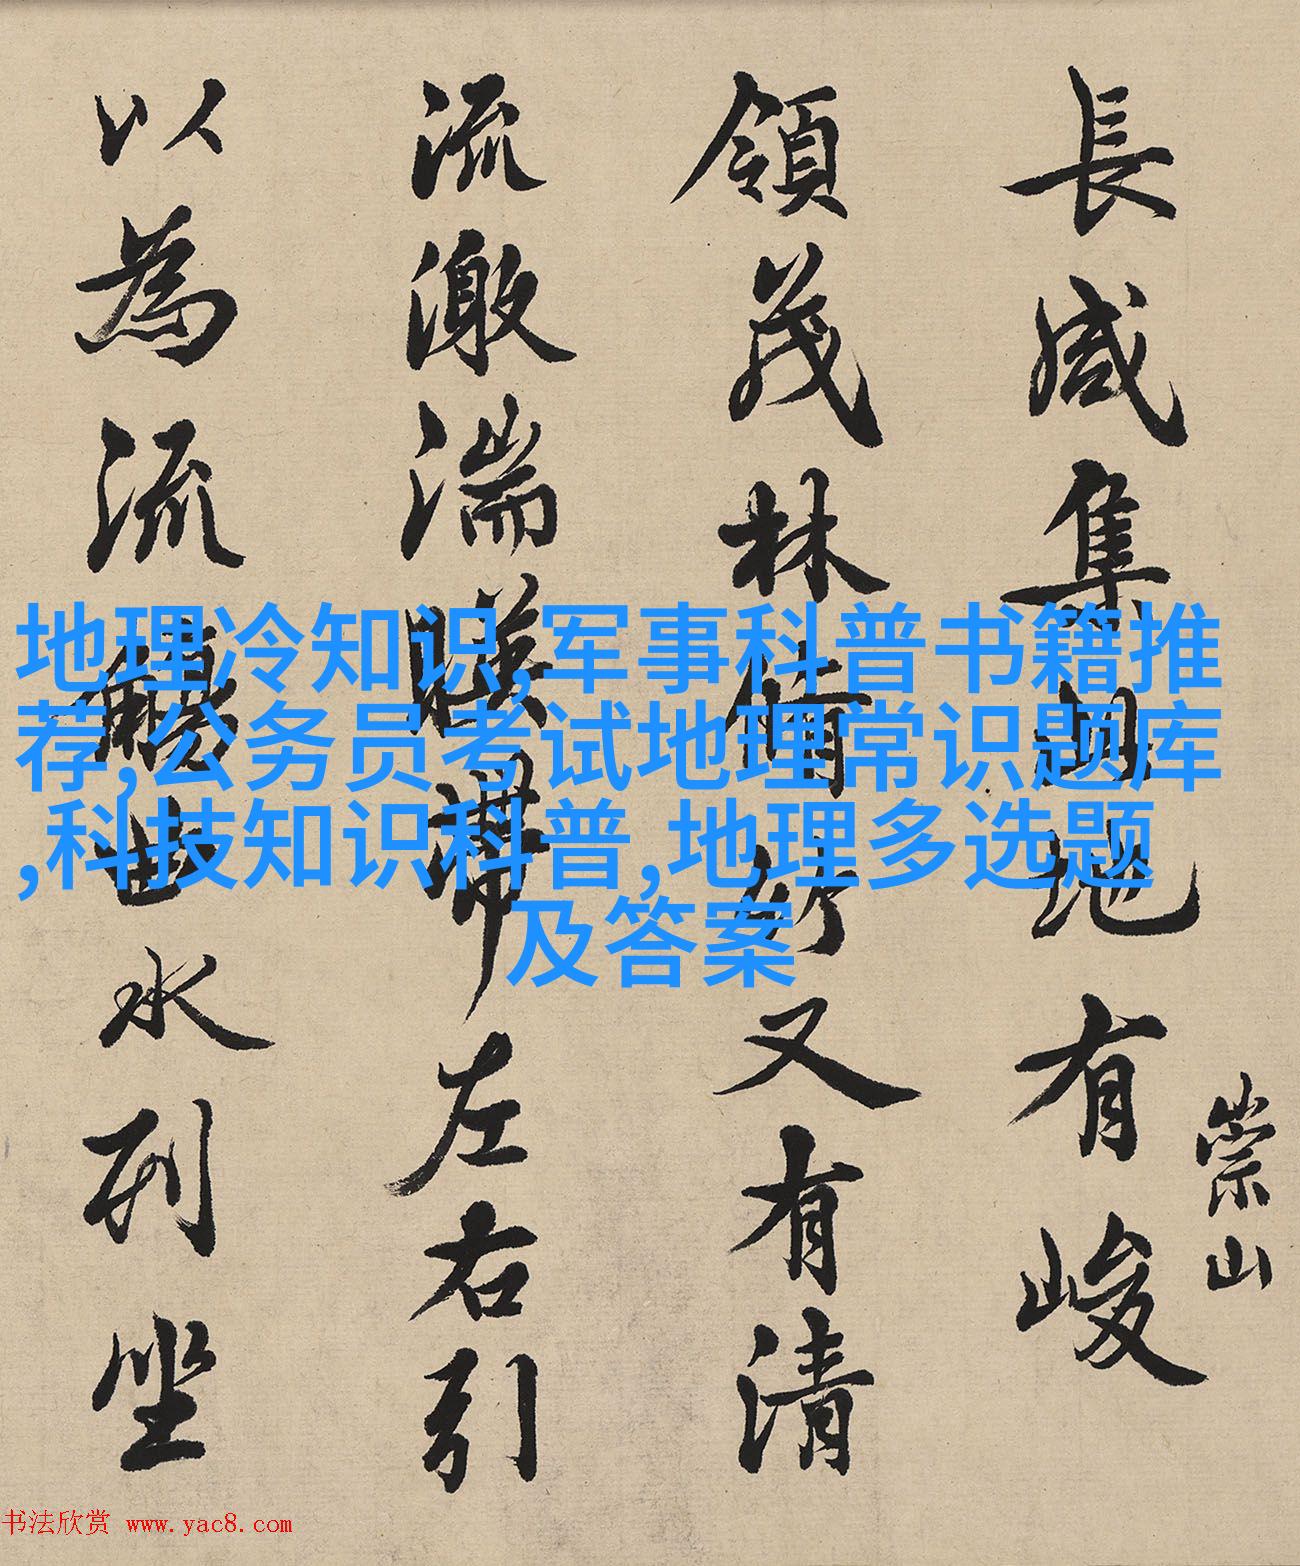 長咸集此地有峻
崇山
領茂林脩竹又有清
流激湍暎帶左右引
以為流觴曲水列坐
地理冷知识,军事科普书籍推
荐,公务员考试地理常识题库
,科技知识科普,地理多选题
及答案
书法欣赏 www.yac8.com